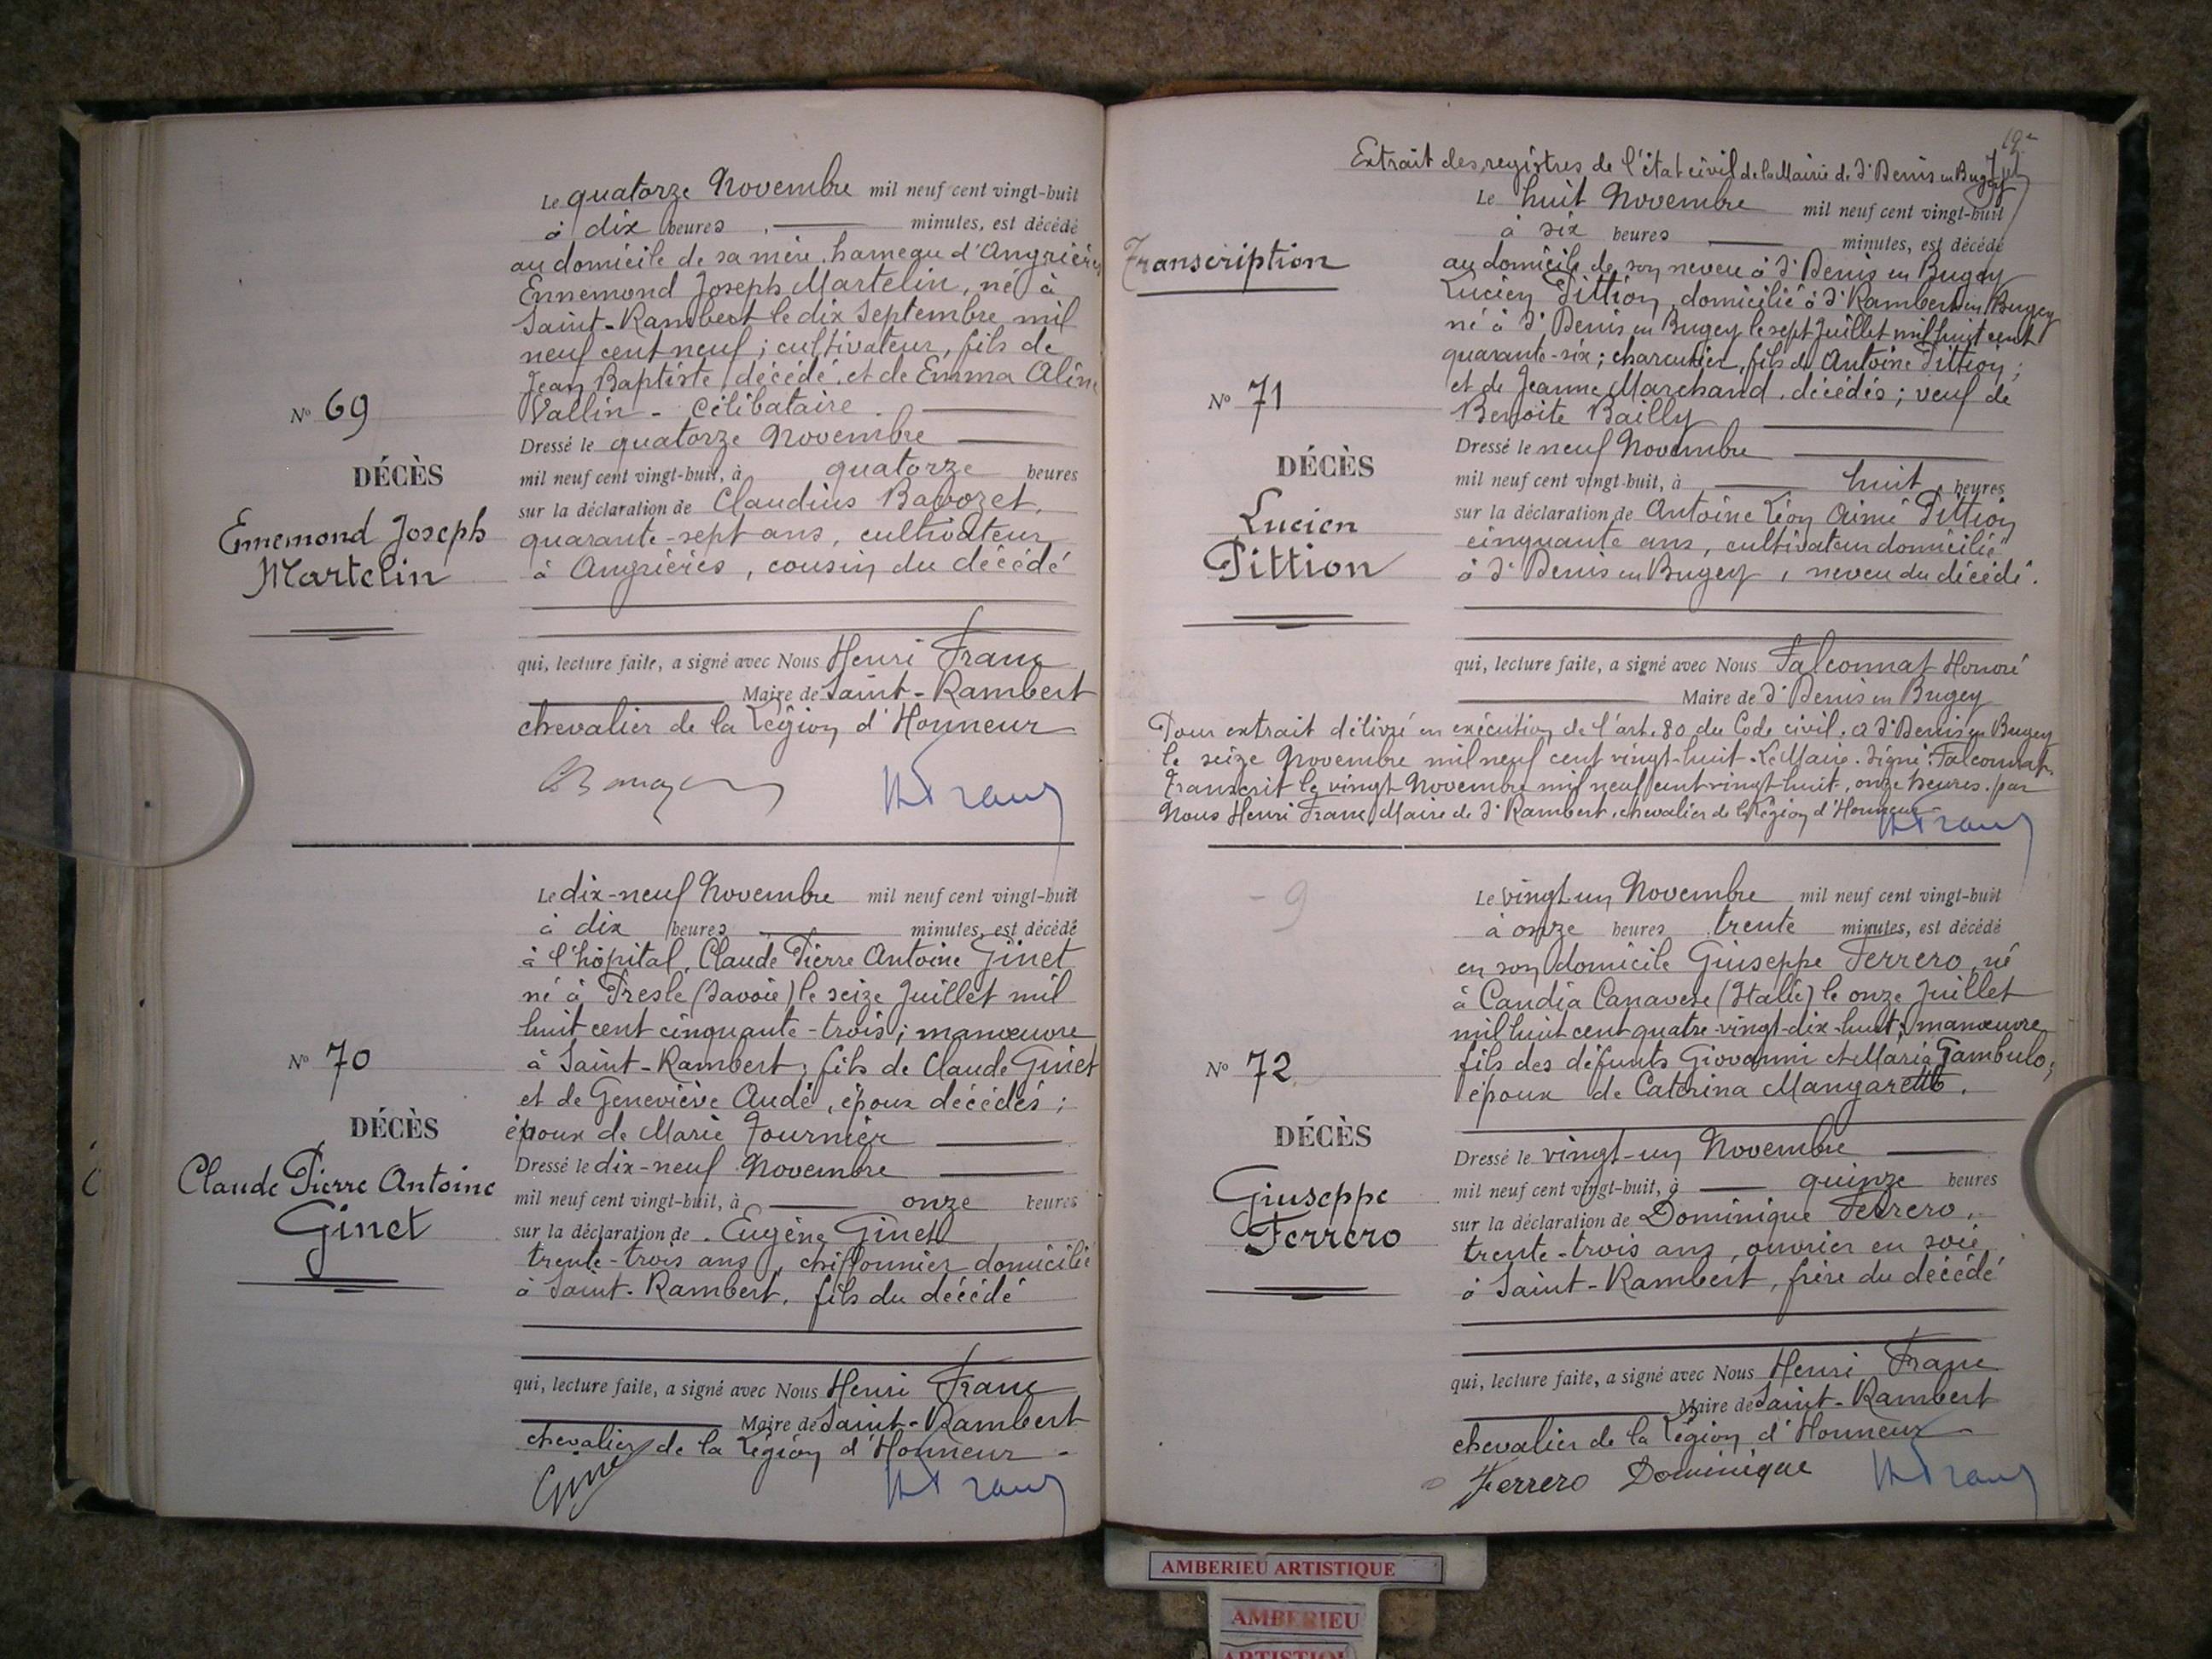 Le quatorze Novembre mil neuf cent vingt-huit
à dix heures minutes, est décédé
au domicile de sa mère, hameau d'Angrières
Ennemond Joseph Martelin, né à
Saint-Rambert le dix Septembre mil
neuf cent neuf ; cultivateur, fils de
Jean Baptiste, décédé, et de Emma Aline
Vallin - Célibataire.
N° 69
DÉCÈS
Ennemond Joseph
Martelin
Dressé le quatorze Novembre
mil neuf cent vingt-huit, à quatorze heures
sur la déclaration de Claudius Babozet,
quarante-sept ans, cultivateur
à Angrières, cousin du décédé
qui, lecture faite, a signé avec Nous Henri Franc
Maire de Saint-Rambert
chevalier de la Légion d'Honneur
HFranc
Le dix-neuf Novembre mil neuf cent vingt-huit
à dix heures minutes, est décédé
à l'hôpital, Claude Pierre Antoine Ginet
né à Presle (Savoie) le seize Juillet mil
huit cent cinquante-trois ; manœuvre
à Saint-Rambert, fils de Claude Ginet
et de Geneviève Audé, époux décédés ;
époux de Marie Fournier
N° 70
DÉCÈS
Claude Pierre Antoine
Ginet
Dressé le dix-neuf Novembre
mil neuf cent vingt-huit, à onze heures
sur la déclaration de Eugène Ginet
trente-trois ans, chiffonnier domicilié
à Saint-Rambert, fils du décédé
qui, lecture faite, a signé avec Nous Henri Franc
Maire de Saint-Rambert
chevalier de la Légion d'Honneur -
Ginet
HFranc
Extrait des registres de l'état civil de la Mairie de St Denis en Bugey
Le huit Novembre mil neuf cent vingt-huit
à six heures minutes, est décédé
Transcription
au domicile de son neveu à St Denis en Bugey
Lucien Pittion, domicilié à St Rambert en Bugey
né à St Denis en Bugey le sept Juillet mil huit cent
quarante-six ; charcutier, fils de Antoine Pittion ;
et de Jeanne Marchand, décédés ; veuf de
Benoite Bailly
N° 71
DÉCÈS
Lucien
Pittion
Dressé le neuf Novembre
mil neuf cent vingt-huit, à huit heures
sur la déclaration de Antoine Léon Aimé Pittion
cinquante ans, cultivateur domicilié
à St Denis en Bugey, neveu du décédé.
qui, lecture faite, a signé avec Nous Falconnat Honoré
Maire de St Denis en Bugey
Pour extrait délivré en exécution de l'art. 80 du Code civil. A St Denis en Bugey
le seize Novembre mil neuf cent vingt-huit. Le Maire. Signé : Falconnat.
Transcrit le vingt Novembre mil neuf cent vingt huit, onze heures. par
Nous Henri Franc, Maire de St Rambert, chevalier de la Légion d'Honneur -
HFranc
- 9
Le vingt-un Novembre mil neuf cent vingt-huit
à onze heures trente minutes, est décédé
en son domicile Giuseppe Ferrero, né
à Candia Canavese (Italie) le onze Juillet
mil huit cent quatre-vingt-dix-huit ; manœuvre
fils des défunts Giovanni et Maria Gambulo ;
époux de Caterina Mangaretto.
N° 72
DÉCÈS
Giuseppe
Ferrero
Dressé le vingt-un Novembre
mil neuf cent vingt-huit, à quinze heures
sur la déclaration de Dominique Ferrero,
trente-trois ans, ouvrier en soie
à Saint-Rambert, frère du décédé
qui, lecture faite, a signé avec Nous Henri Franc
Maire de Saint-Rambert
chevalier de la Légion d'Honneur
Ferrero Dominique
HFranc
AMBERIEU ARTISTIQUE
AMBERIEU
ARTISTIQUE